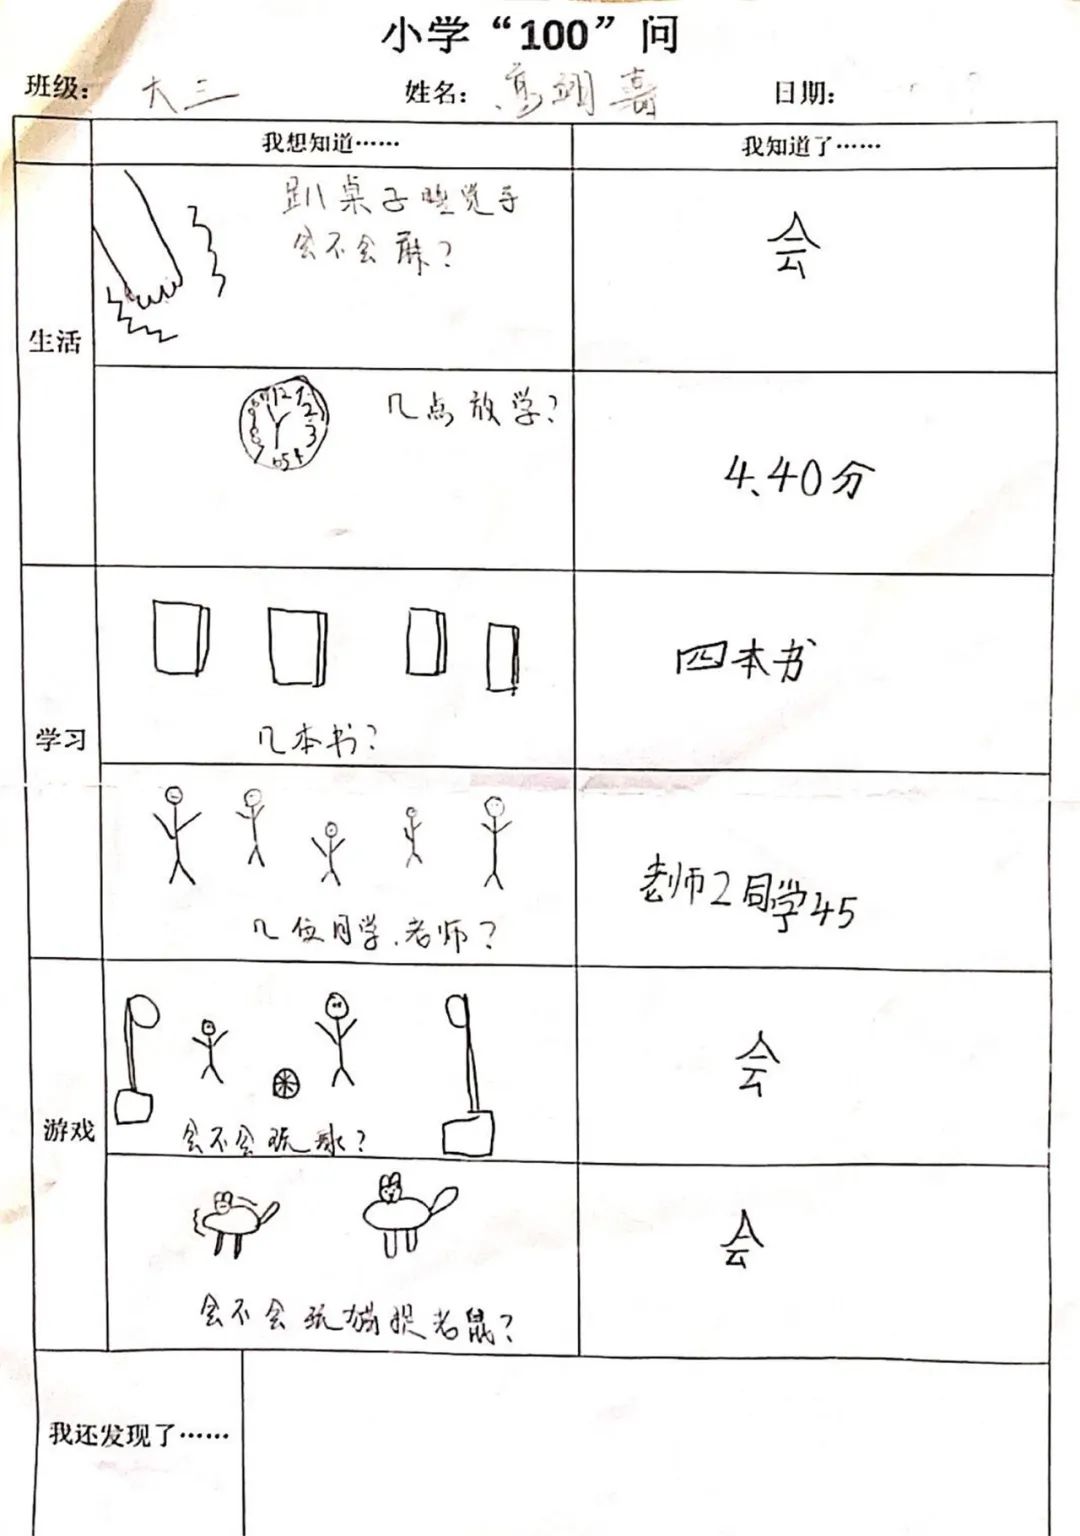 小学“100”问
班级： 大三 姓名： 高翊嘉 日期：
我想知道…… 我知道了……
生活
趴桌子睡觉手
会不会麻？
会
12 1 2 3 4 5 6 7 8 9 10 11
几点放学？
4、40分
学习
几本书？
四本书
几位同学、老师？
老师2同学45
游戏
会不会玩球？
会
会不会玩猫捉老鼠？
会
我还发现了……